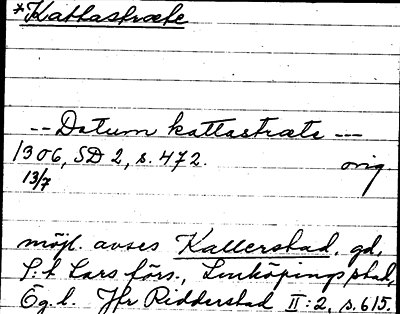 *Kattastræte
-- Datum kattastræte ---
1306, SD 2, s. 472. orig.
13/7
möjl. avses Kallerstad, gd,
S:t Lars förs., Linköpings stad,
Ög. l. Jfr Ridderstad II:2, s. 615.